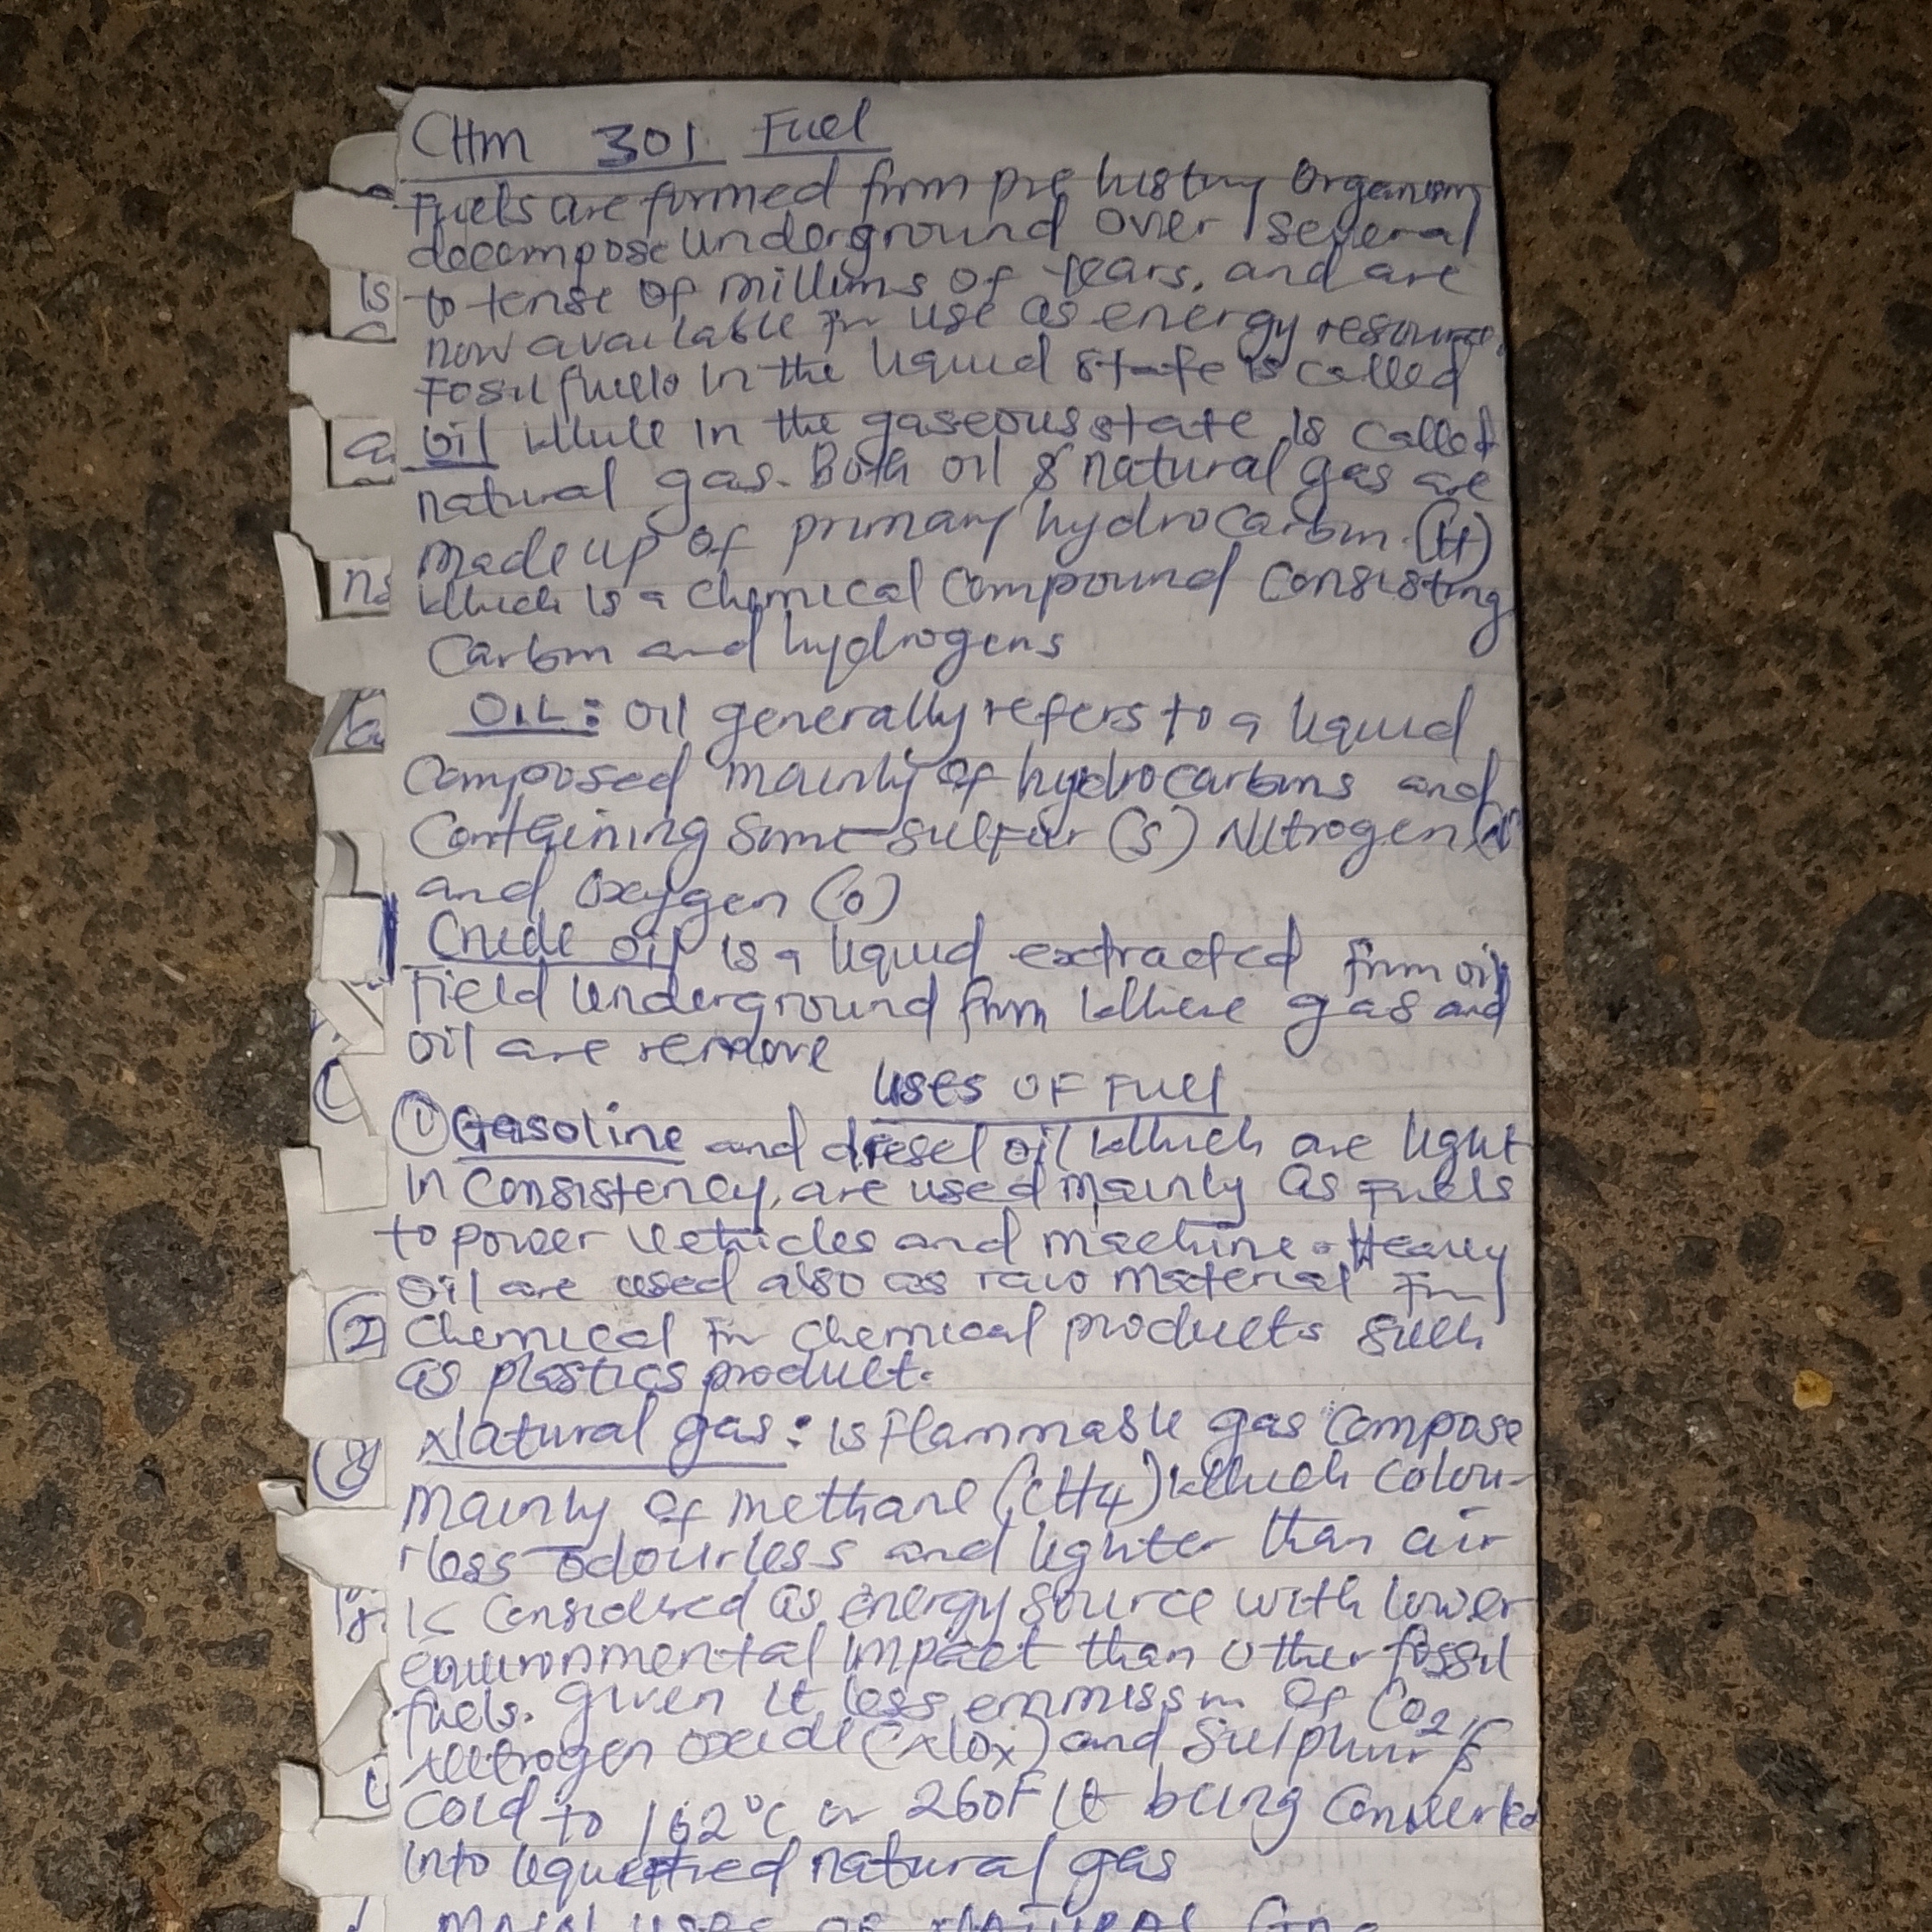 CHM 301 Fuel
Fuels are formed from pre history Organism
decompose underground over several
to tense of millions of years, and are
now available for use as energy resource.
Fossil fuels in the liquid state is called
oil while in the gaseous state is called
natural gas. Both oil & natural gas are
made up of primary hydrocarbon (H)
which is a chemical compound consisting
Carbon and hydrogens
OIL: Oil generally refers to a liquid
Composed mainly of hydrocarbons and
Containing some sulfur (S) Nitrogen (N)
and Oxygen (O)
Crude oil is a liquid extracted from oil
Field underground from where gas and
oil are remove
USES OF FUEL
① Gasoline and diesel oil which are light
in Consistency, are used mainly as fuels
to power vehicles and machine. Heavy
oil are used also as raw material for
② Chemical for chemical products such
as plastics product.
Natural gas: is flammable gas compose
mainly of methane (CH4) which colou-
rless odourless and lighter than air
Is considered as energy source with lower
environmental impact than other fossil
fuels. given it less emmission of CO2,
Nitrogen oxide (NOx) and Sulphur
Cold to 162°C or 260F it being Converted
into liquefied natural gas
MAIN USES OF NATURAL Gas